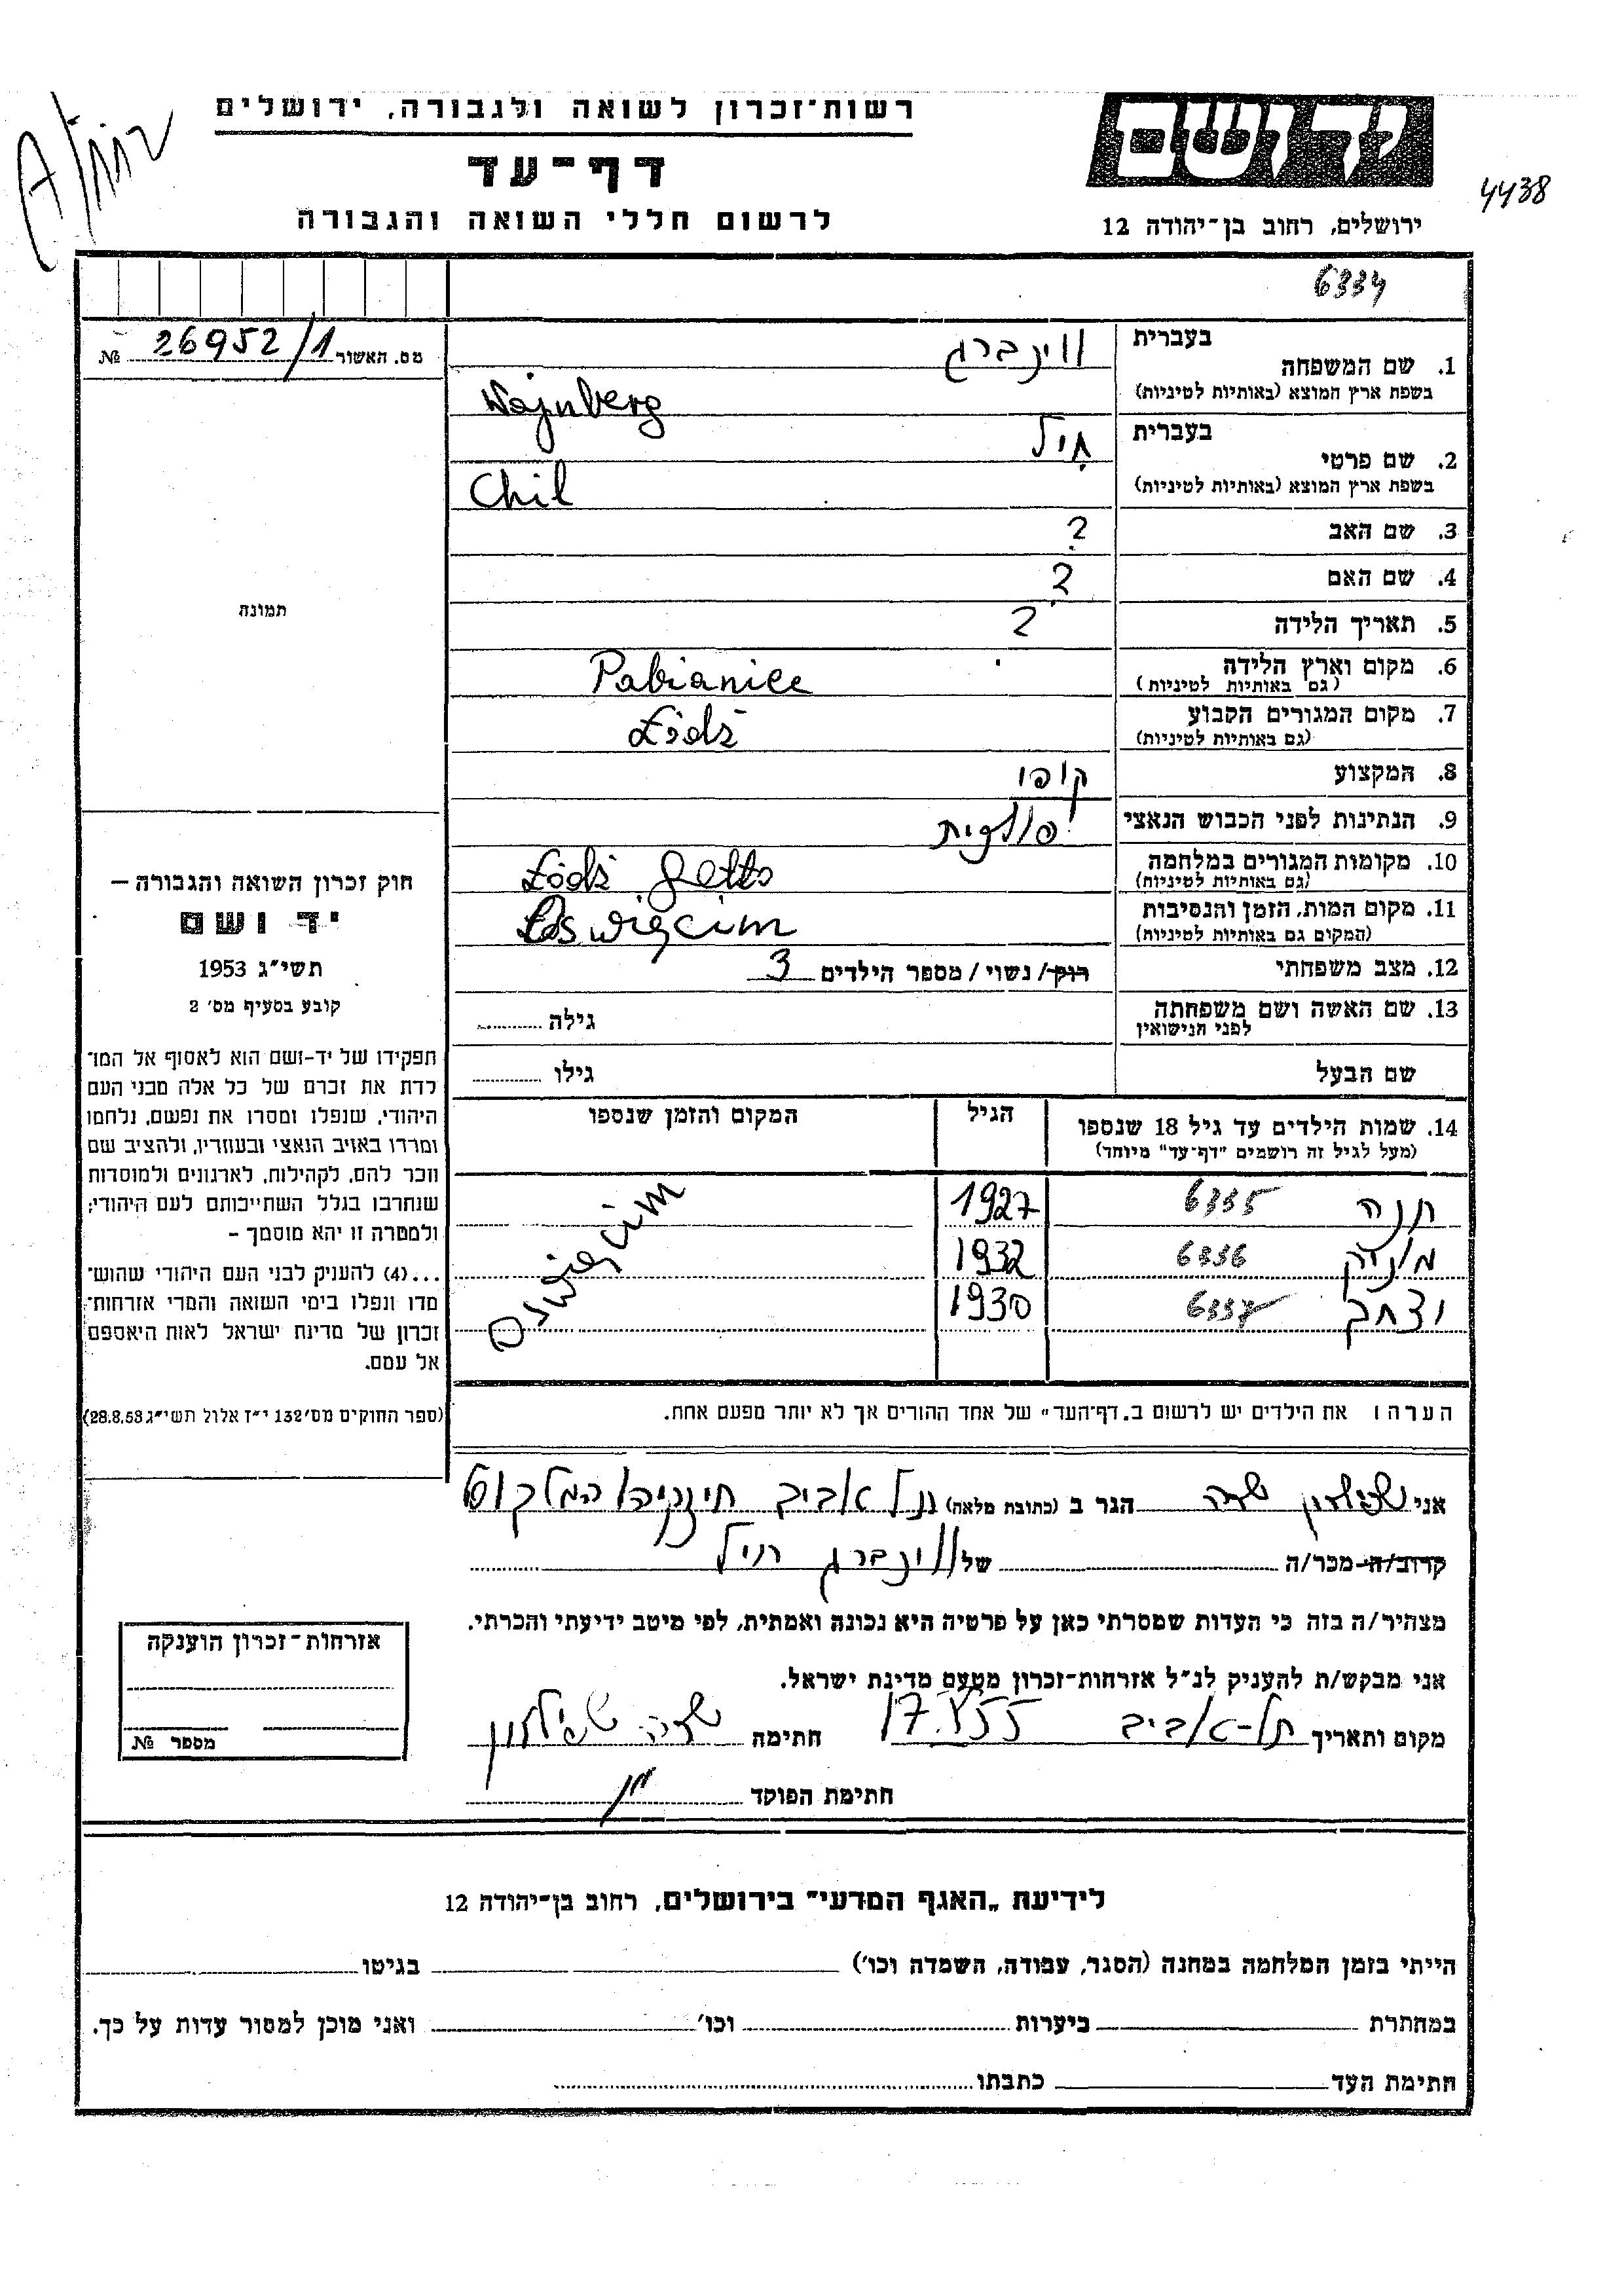 רשות־זכרון לשואה ולגבורה, ירושלים
דף־עד
לרשום חללי השואה והגבורה
יד ושם
ירושלים, רחוב בן־יהודה 12
4438
6334
מס. האשור 26952/1 №
תמונה
בעברית ווינברג
1. שם המשפחה
בשפת ארץ המוצא (באותיות לטיניות) Wajnberg
בעברית חיל
2. שם פרטי
בשפת ארץ המוצא (באותיות לטיניות) Chil
3. שם האב ?
4. שם האם ?
5. תאריך הלידה ?
6. מקום וארץ הלידה Pabianice
(גם באותיות לטיניות)
7. מקום המגורים הקבוע Łódź
(גם באותיות לטיניות)
8. המקצוע
9. הנתינות לפני הכבוש הנאצי פולנית
10. מקומות המגורים במלחמה Łódź Getto
(גם באותיות לטיניות)
11. מקום המות, הזמן והנסיבות Oswięcim
(המקום גם באותיות לטיניות)
12. מצב משפחתי רוק/ נשוי / מספר הילדים 3
13. שם האשה ושם משפחתה גילה
לפני הנישואין
שם הבעל גילו
14. שמות הילדים עד גיל 18 שנספו הגיל המקום והזמן שנספו
(מעל לגיל זה רושמים "דף־עד" מיוחד)
חנה 6335 1927 Oswięcim
6336 1932
יצחק 6337 1930
הערה: את הילדים יש לרשום ב„דף־העד" של אחד ההורים אך לא יותר מפעם אחת.
חוק זכרון השואה והגבורה –
יד ושם
תשי"ג 1953
קובע בסעיף מס' 2
תפקידו של יד-ושם הוא לאסוף אל המו־
לדת את זכרם של כל אלה מבני העם
היהודי, שנפלו ומסרו את נפשם, נלחמו
ומרדו באויב הנאצי ובעוזריו, ולהציב שם
וזכר להם, לקהילות, לארגונים ולמוסדות
שנחרבו בגלל השתייכותם לעם היהודי;
ולמטרה זו יהא מוסמך –
...(4) להעניק לבני העם היהודי שהוש־
מדו ונפלו בימי השואה והמרי אזרחות־
זכרון של מדינת ישראל לאות היאספם
אל עמם.
(ספר החוקים מס' 132 י"ז אלול תשי"ג 28.8.53)
אני שרה הגר ב (כתובת מלאה) תל אביב
קרוב/ה־מכר/ה של ווינברג חיל
מצהיר/ה בזה כי העדות שמסרתי כאן על פרטיה היא נכונה ואמתית, לפי מיטב ידיעתי והכרתי.
אני מבקש/ת להעניק לנ"ל אזרחות־זכרון מטעם מדינת ישראל.
מקום ותאריך תל-אביב 17.X.55 חתימה שרה
חתימת הפוקד
אזרחות־זכרון הוענקה
מספר №
לידיעת „האגף המדעי" בירושלים, רחוב בן־יהודה 12
הייתי בזמן המלחמה במחנה (הסגר, עבודה, השמדה וכו') בגיטו
במחתרת ביערות וכו' ואני מוכן למסור עדות על כך.
חתימת העד כתבתו